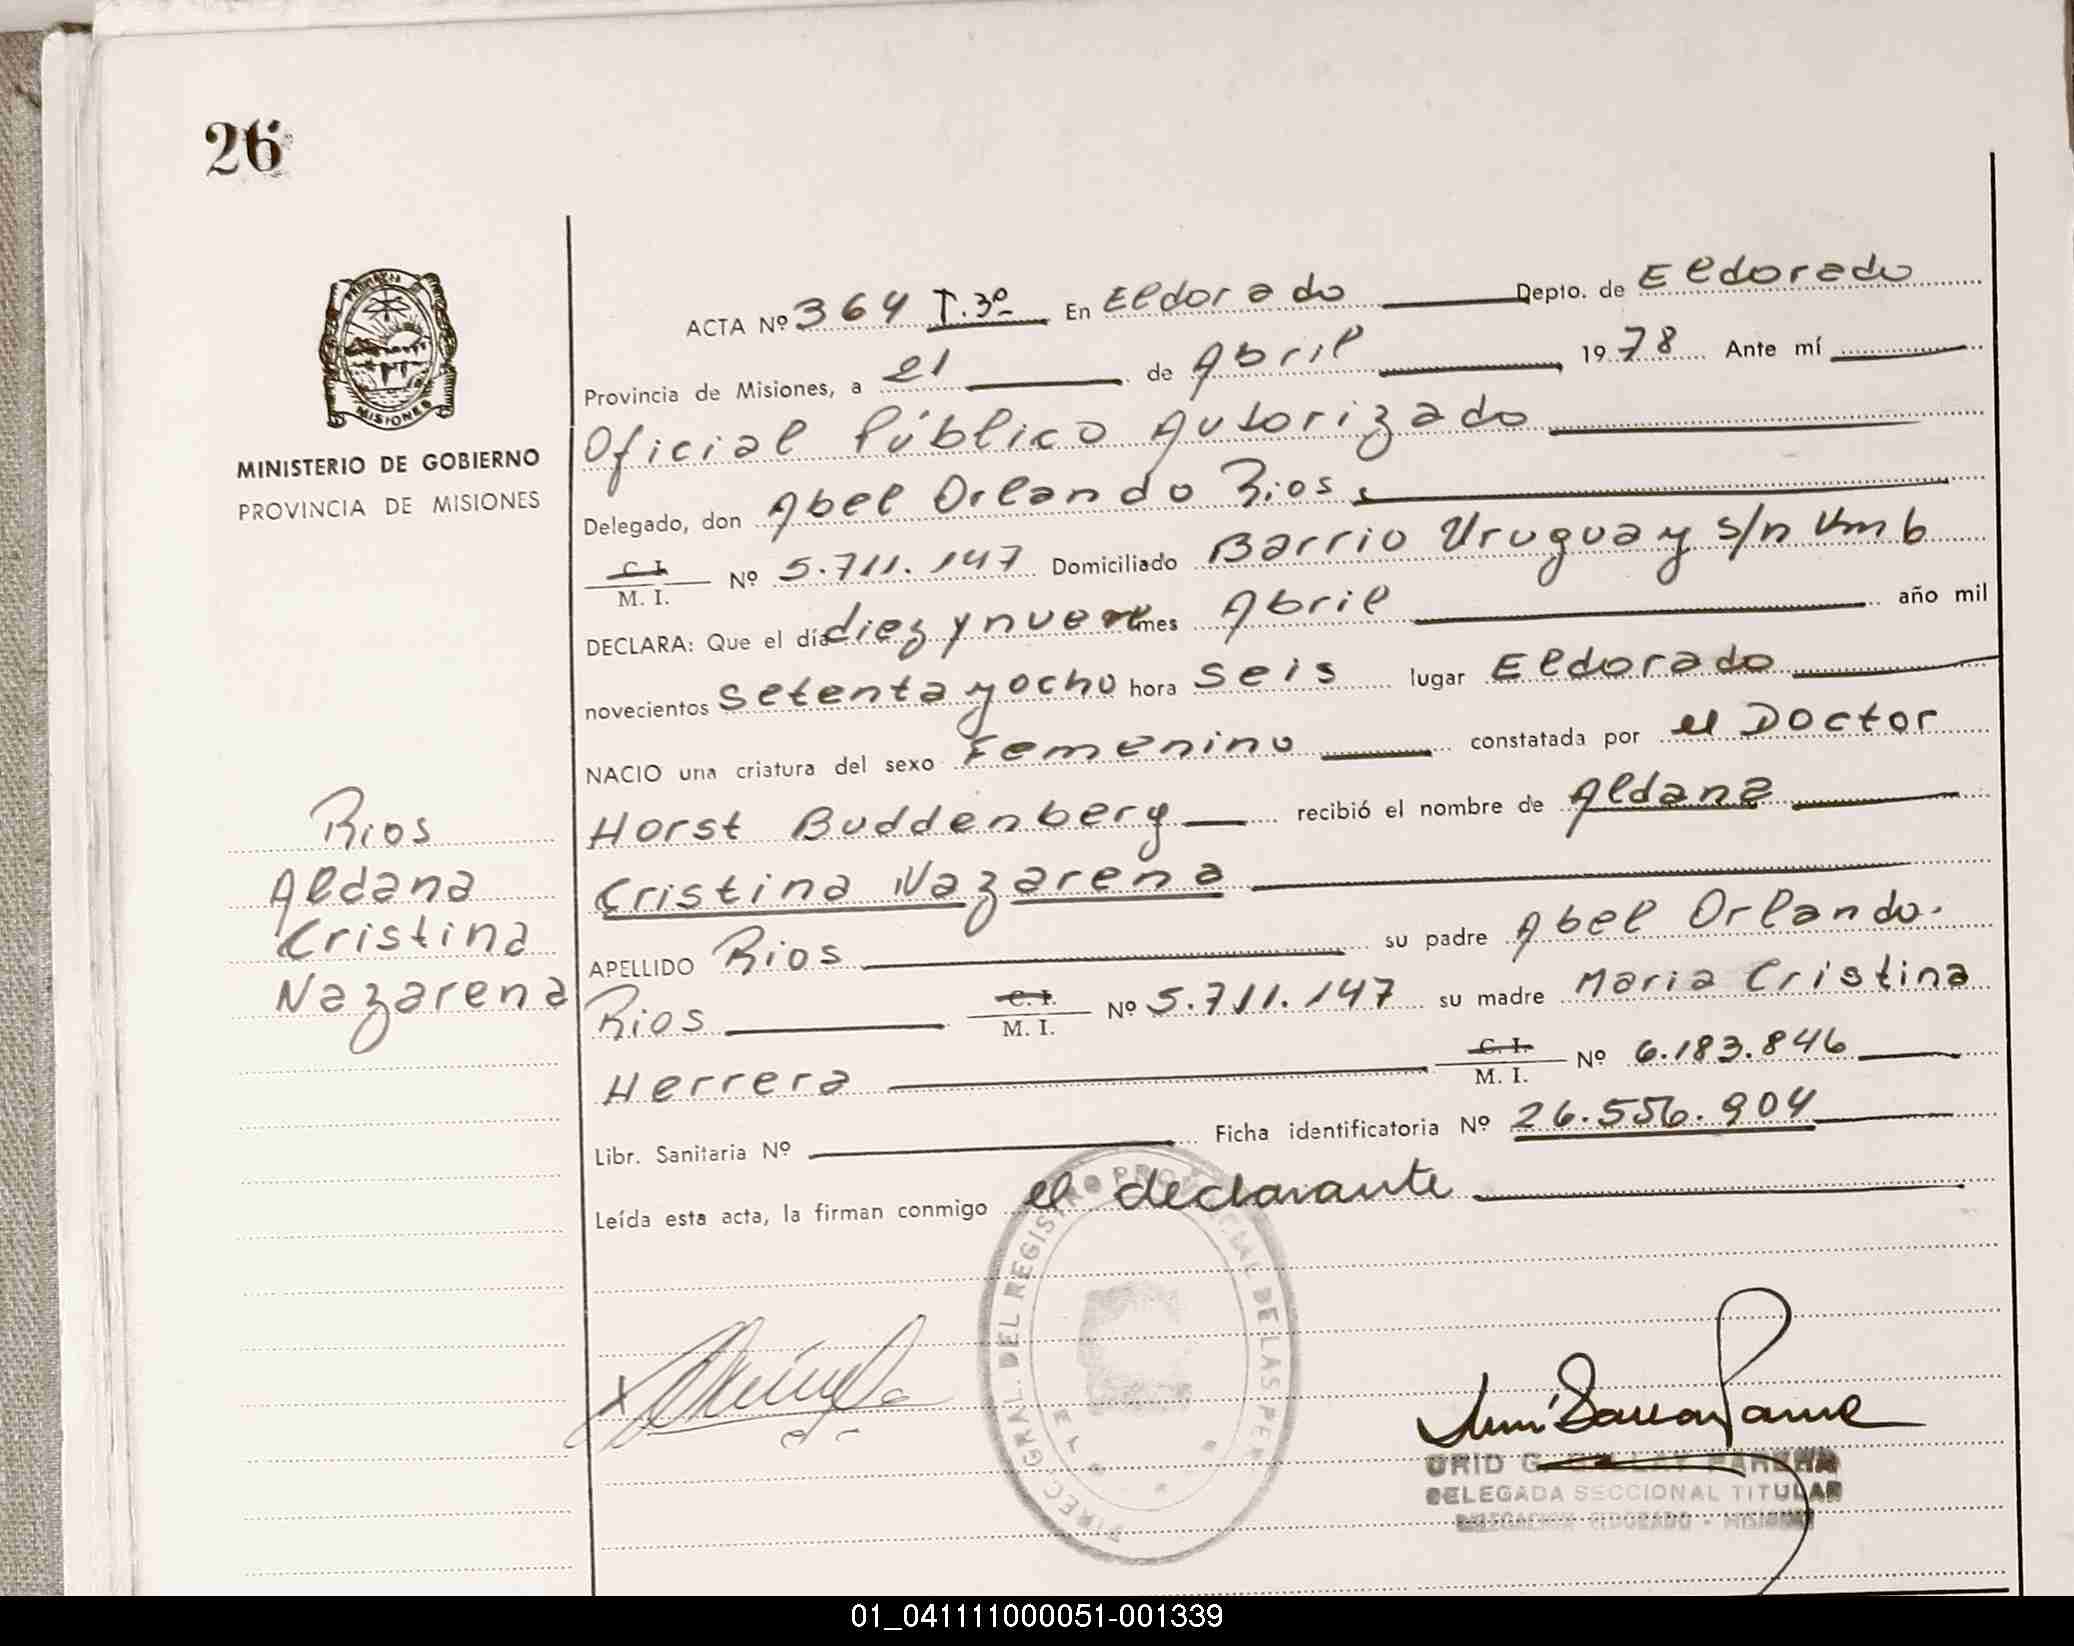 26
MISIONES
MINISTERIO DE GOBIERNO
PROVINCIA DE MISIONES
Rios
Aldana
Cristina
Nazarena
ACTA Nº 364 T.3º En Eldorado Depto. de Eldorado
Provincia de Misiones, a 21 de Abril 1978 Ante mí
Oficial Público Autorizado
Delegado, don Abel Orlando Rios,
C. I.
M. I. Nº 5.711.147 Domiciliado Barrio Uruguay s/n Km 6
DECLARA: Que el día diez y nueve mes Abril año mil
novecientos setenta y ocho hora seis lugar Eldorado
NACIO una criatura del sexo Femenino constatada por el Doctor
Horst Buddenberg recibió el nombre de Aldana
Cristina Nazarena
APELLIDO Rios su padre Abel Orlando
Rios C. I. M. I. Nº 5.711.147 su madre Maria Cristina
Herrera C. I. M. I. Nº 6.183.846
Libr. Sanitaria Nº Ficha identificatoria Nº 26.556.904
Leída esta acta, la firman conmigo el declarante
DIREC. GRAL. DEL REGISTRO PROVINCIAL DE LAS PER
DELEGADA SECCIONAL TITULAR
DELEGACION ELDORADO - MISIONES
01_041111000051-001339